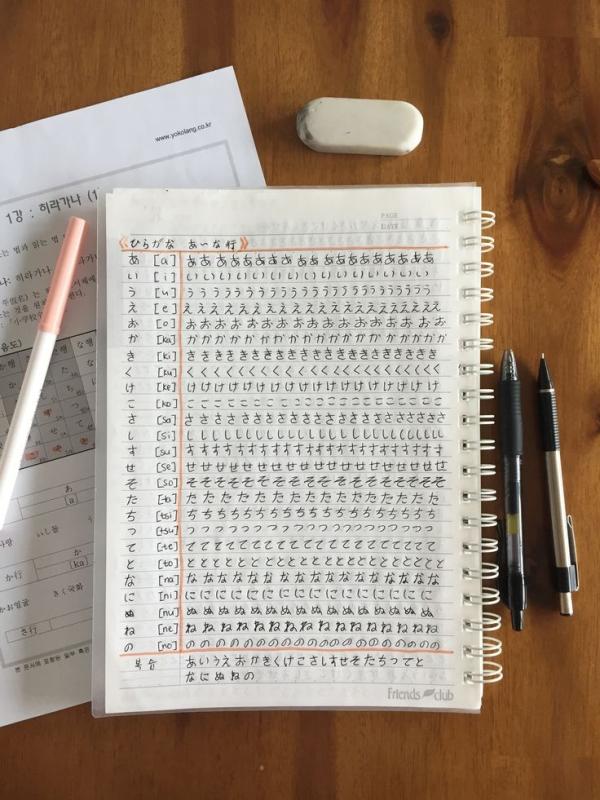 www.yokolang.co.kr
1강 : 히라가나 (1
PAGE
DATE
《ひらがな あ~な行》
あ [a] ああああああああああああああああああああ
い [i] いいいいいいいいいいいいいいいいい
う [u] ううううううううううううううううううう
え [e] えええええええええええええええええええ
お [o] おおおおおおおおおおおおおおおおお
か [ka] かかかかかかかかかかかかかかかかかかか
き [ki] きききききききききききききききききききき
く [ku] くくくくくくくくくくくくくくくくくく
け [ke] けけけけけけけけけけけけけけけけけ
こ [ko] ここここここここここここここここ
さ [sa] ささささささささささささささささささささ
し [si] しししししししししししししししししししし
す [su] すすすすすすすすすすすすすすすすすすすす
せ [se] せせせせせせせせせせせせせせせせせ
そ [so] そそそそそそそそそそそそそそそそそそそ
た [ta] たたたたたたたたたたたたたたたた
ち [tsi] ちちちちちちちちちちちちちちちちちち
つ [tsu] つつつつつつつつつつつつつつつつつつ
て [te] てててててててててててててててててて
と [to] ととととととととととととととととととと
な [na] なななななななななななななななな
に [ni] にににににににににににににににに
ぬ [nu] ぬぬぬぬぬぬぬぬぬぬぬぬぬぬ
ね [ne] ねねねねねねねねねねねねねねね
の [no] ののののののののののののののののののの
복습 あいうえおかきくけこさしすせそたちつてと
なにぬねの
Friends club
あ
[a
いし돌
か
か行 [ka
かお얼굴 きく국화
さ行
본 문서의 포함된 일부 혹은